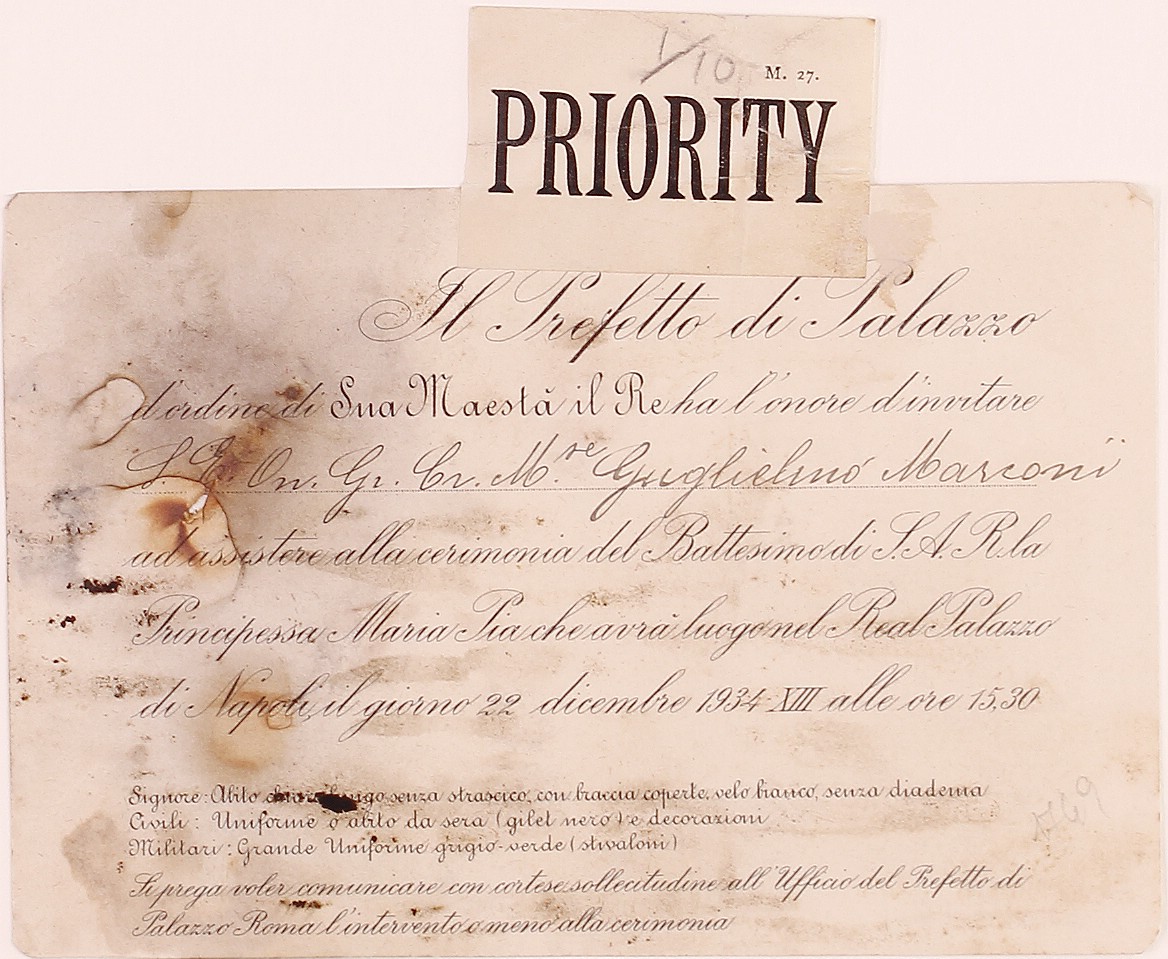 1/10
M. 27.
PRIORITY
Il Prefetto di Palazzo
d'ordine di Sua Maestà il Re ha l'onore d'invitare
S. E. On. Gr. Cr. M.se Guglielmo Marconi
ad assistere alla cerimonia del Battesimo di S. A. R. la
Principessa Maria Pia che avrà luogo nel Real Palazzo
di Napoli, il giorno 22 dicembre 1934-XIII alle ore 15,30
Signore: Abito lungo senza strascico, con braccia coperte, velo bianco, senza diadema
Civili: Uniforme o abito da sera (gilet nero) e decorazioni
Militari: Grande Uniforme grigio-verde (stivaloni)
Si prega voler comunicare con cortese sollecitudine all'Ufficio del Prefetto di
Palazzo Roma l'intervento o meno alla cerimonia